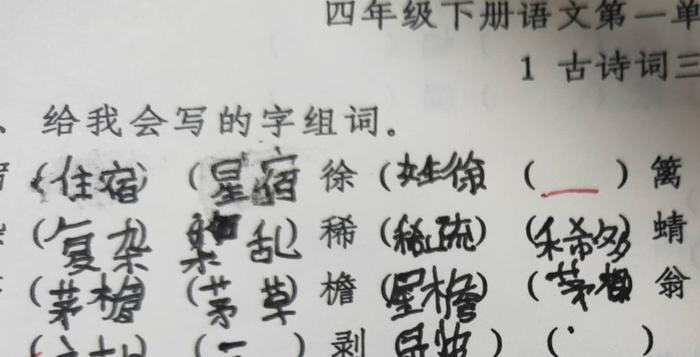 四年级下册语文第一单
1 古诗词三
、给我会写的字组词。
(住宿) (星宿) 徐 (姓徐) ( ) 篱
(复杂) 杂乱) 稀 (稀疏) (稀多) 蜻
(茅檐) (茅草) 檐 (屋檐) (茅檐) 翁
( ) ( ) 剥 ( ) ( )